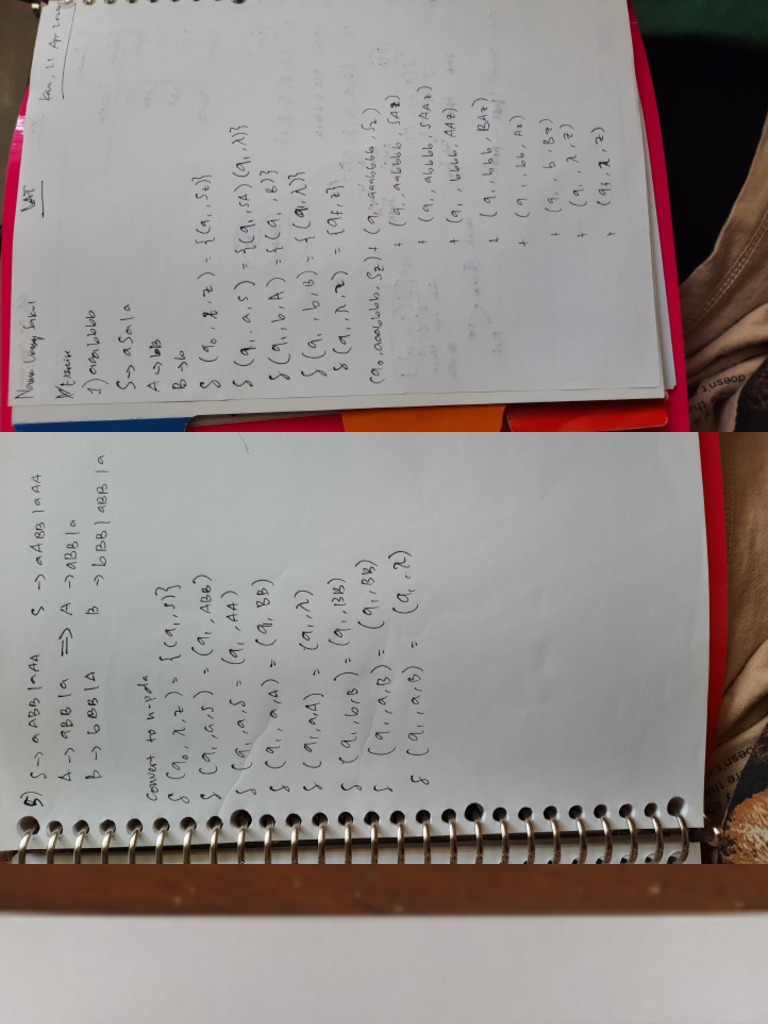 LAT
Kam, 21 Apr
1) aaabbbb
S → aSA | a
A → bB
B → b
δ (q0, λ, z) = {(q1, Sz)}
δ (q1, a, S) = {(q1, SA) (q1, λ)}
δ (q1, b, A) = {(q1, B)}
δ (q1, b, B) = {(q1, λ)}
δ (q1, λ, z) = {qf, z}
(q0, aaabbbb, Sz) + (q1, aaabbbb, Sz)
+ (q1, aabbbb, SAz)
+ (q1, abbbb, SAAz)
+ (q1, bbbb, AAz)
+ (q1, bbb, BAz)
+ (q1, bb, Az)
+ (q1, b, Bz)
+ (q1, λ, z)
+ (qf, λ, z)
5) S → aABB | aAA S → aABB | aAA
A → aBB | a => A → aBB | a
B → bBB | A B → bBB | aBB | a
convert to n-pda
δ (q0, λ, z) = {(q1, S)}
δ (q1, a, S) = (q1, ABB)
δ (q1, a, S = (q1, AA)
δ (q1, a, A) = (q1, BB)
δ (q1, a, A) = (q1, λ)
δ (q1, b, B) = (q1, BB)
δ (q1, a, B) = (q1, BB)
δ (q1, a, B) = (q1, λ)
doesn't